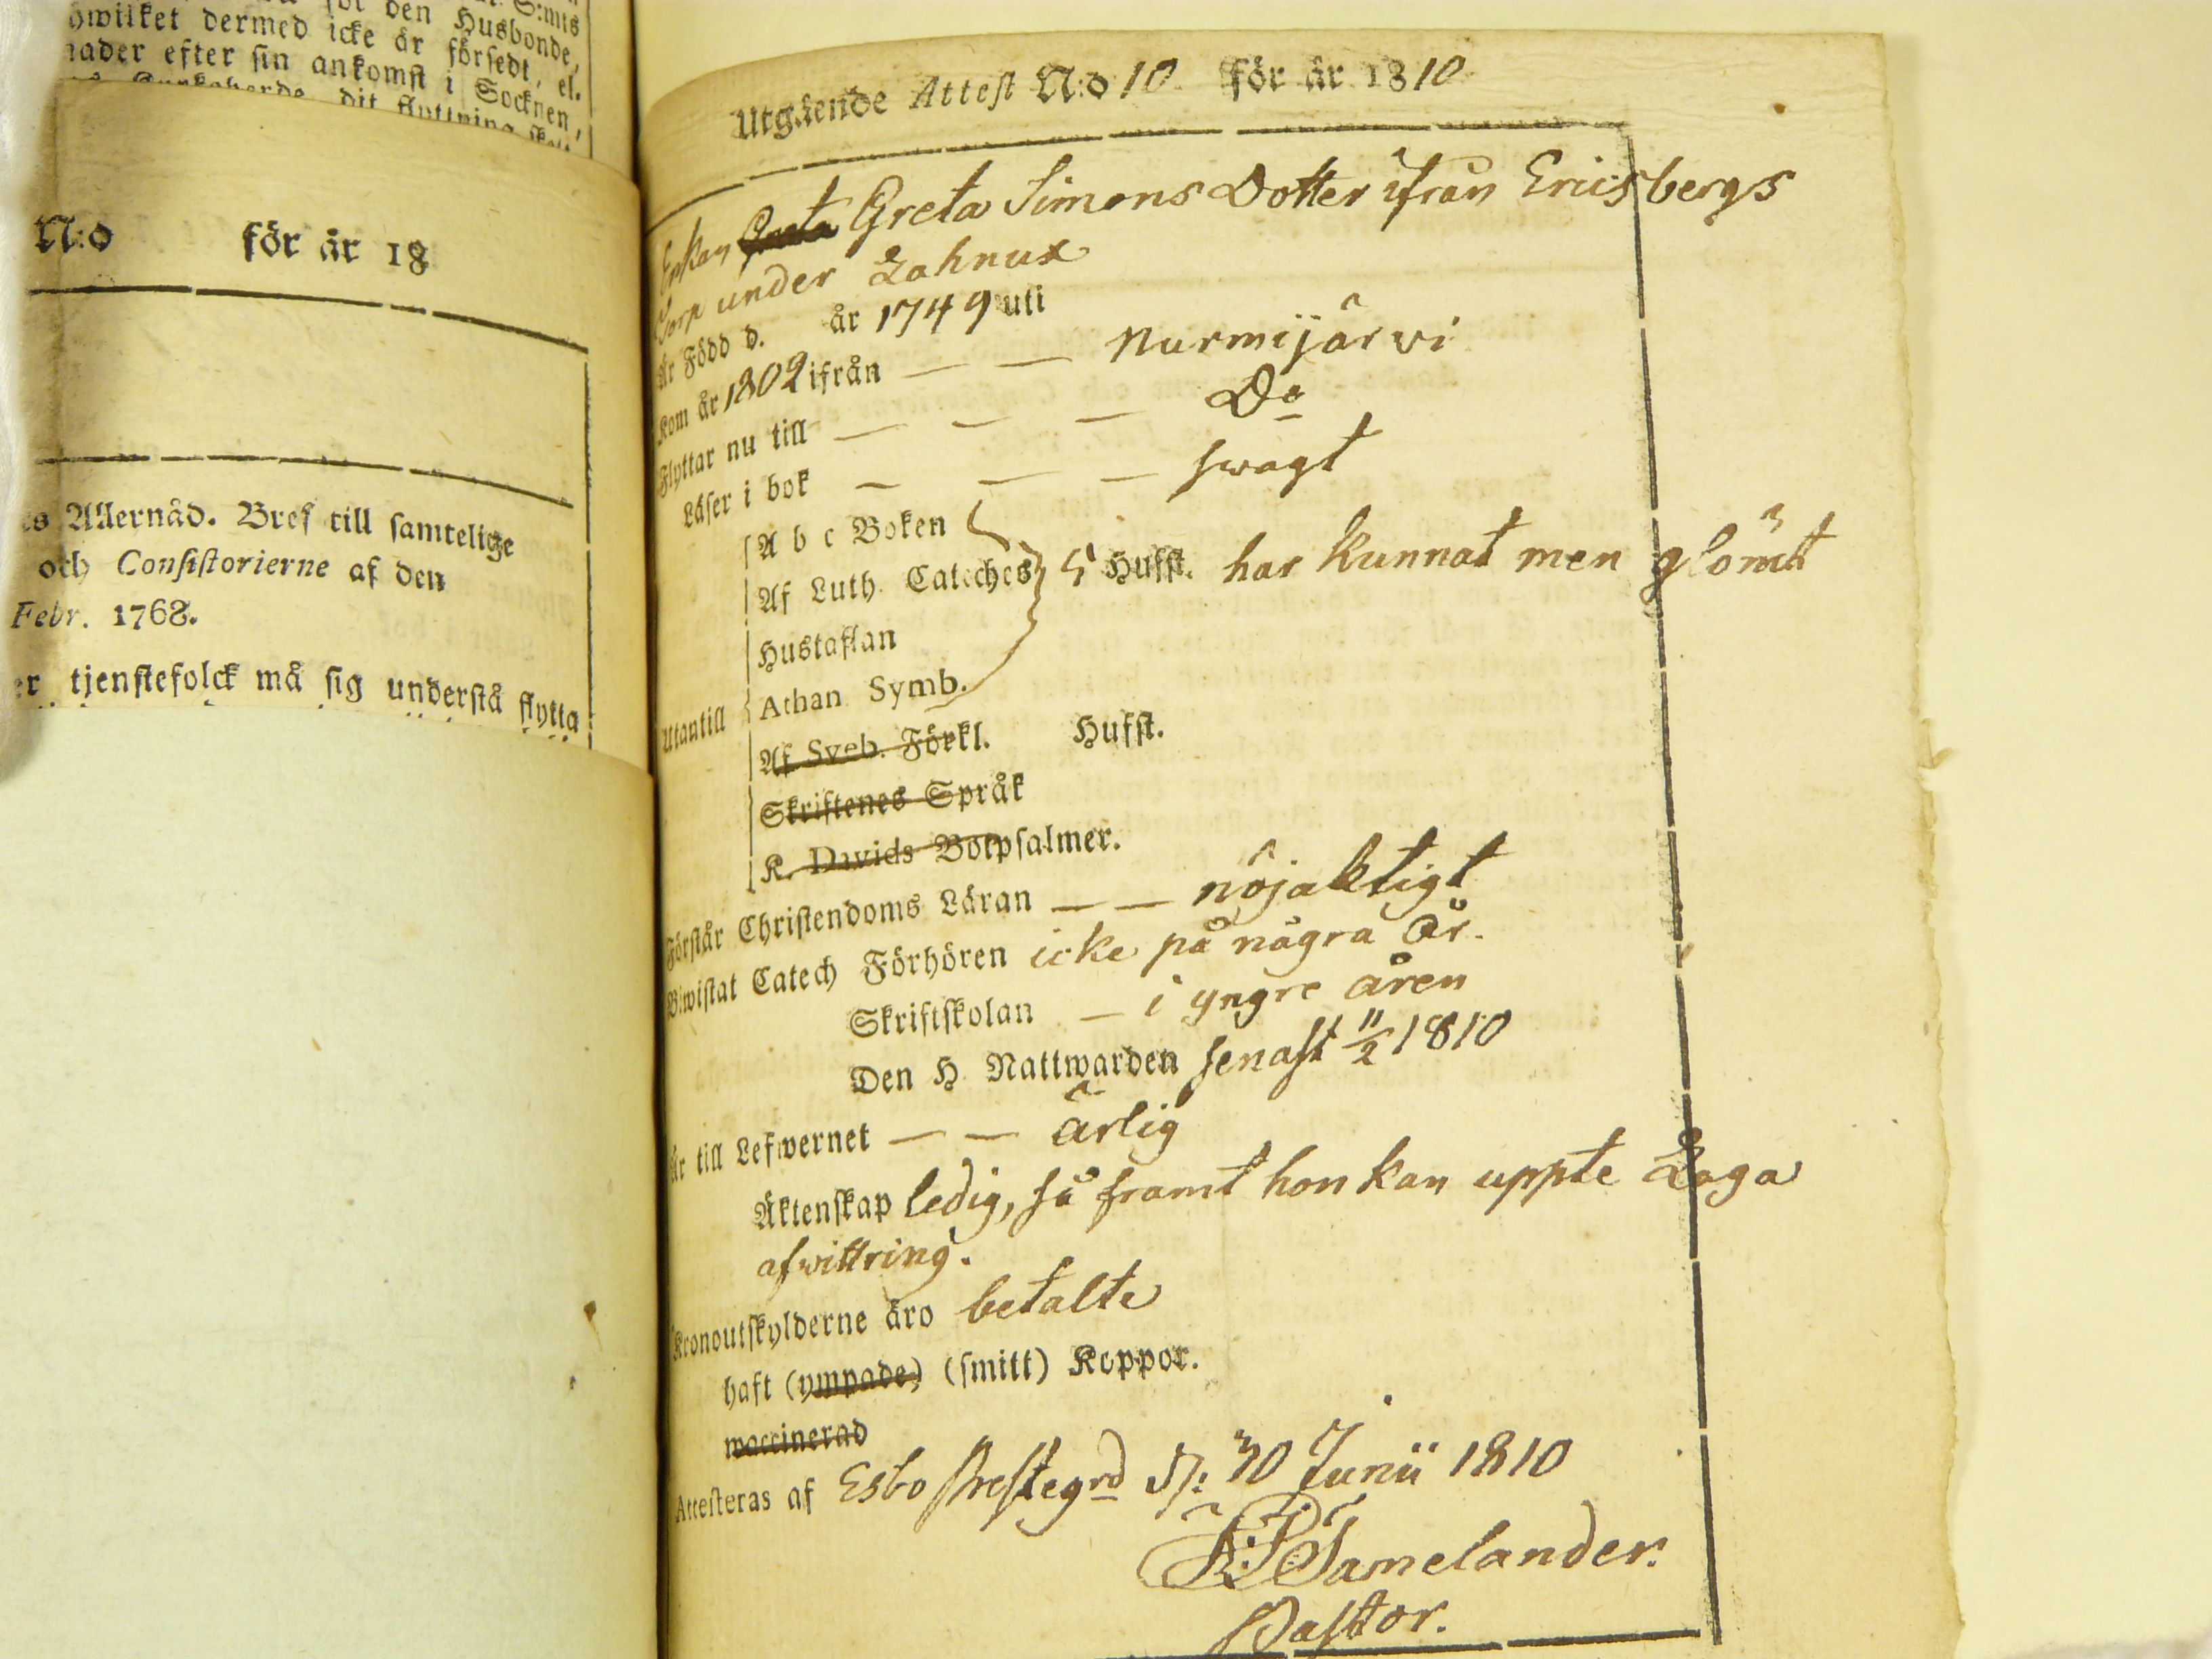 S:mts
för den Husbonde,
hwilket dermed icke är försedt, el.
nader efter sin ankomst i Socknen,
dit flyttning
N:o för år 18
Allernåd. Bref till samtelige
och Consistorierne af den
Febr. 1768.
tjenstefolck må sig understå flytta
Utgående Attest N:o 10 för år 1810
Enkan Greta Greta Simons Dotter ifrån Ericsbergs
Torp under Lahnus
Är Född d. år 1749 uti
Kom år 1802 ifrån — — Nurmijärvi
Flyttar nu till — — — Do
Läser i bok — — — swagt
Utantill
A b c Boken
Af Luth. Cateches 5 Hufst. har kunnat men glömt
Hustaflan
Athan Symb.
Af Sveb. Förkl. Hufst.
Skriftenes Språk
K. Davids Botpsalmer.
Förstår Christendoms Läran — — nöjaktigt
Biwistat Catech Förhören icke på några år.
Skriftskolan — i yngre åren
Den H Nattwarden senast 11/2 1810
Är till Lefwernet — — ärlig
Äktenskap ledig, så framt hon kan uppte Laga
afwittring.
Kronoutskylderne äro betalte
haft (ympade) (smitt) Koppor.
waccinerad
Attesteras af Esbo Prestegrd d: 30 Junii 1810
Tamelander.
Pastor.